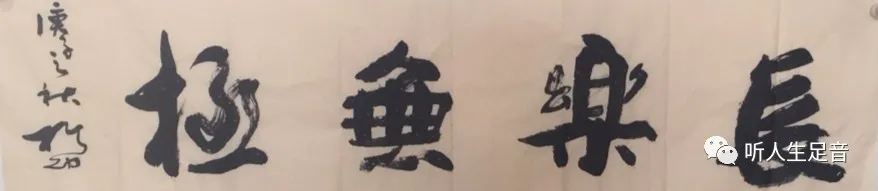 長樂無極
庚子之秋
听人生足音